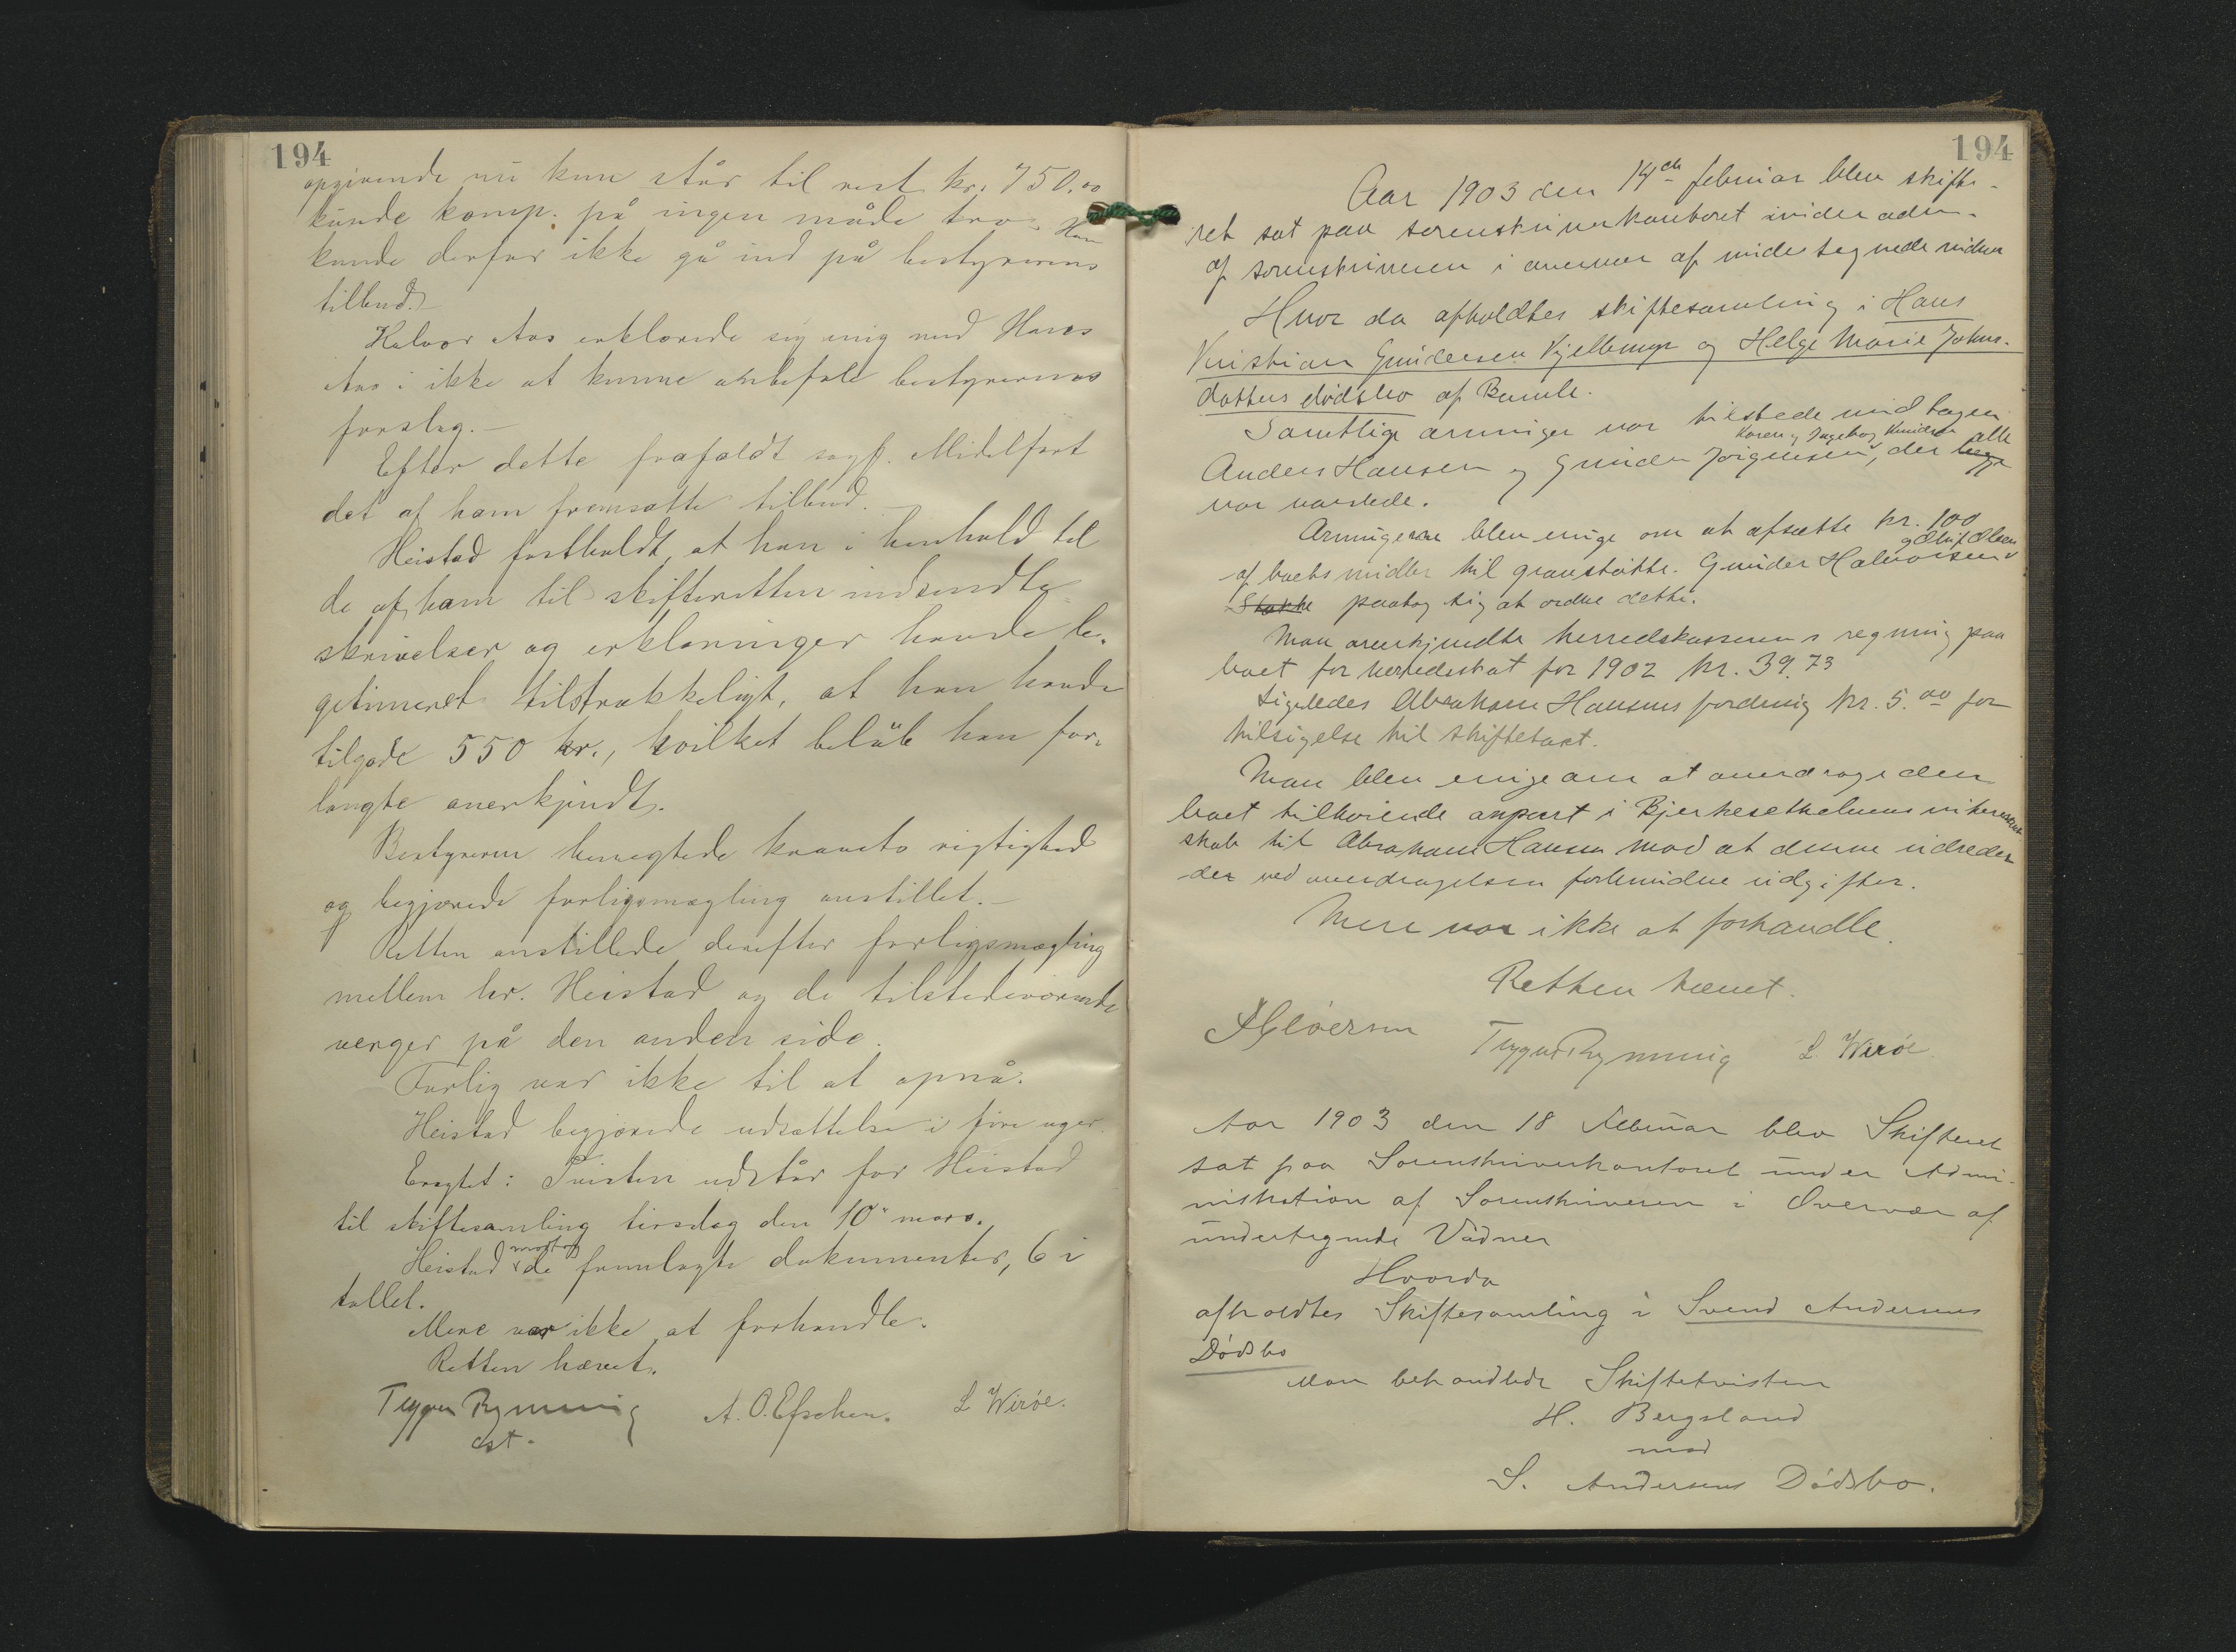 194
opgivende nu kun står til rest kr. 750.00
kunde komp. på ingen måde tro. Han
kunde derfor ikke gå ind på bestyrerens
tilbud.
Halvor Aas erklærede sig enig med Hans
Aas i ikke at kunne anbefale bestyrerens
forslag.
Efter dette frafaldt sagf. Midelfart
det af ham fremsatte tilbud.
Heistad fastholdt, at han i henhold til
de af ham til skifteretten indsendte
skrivelser og erklæringer havde le-
gitimeret tilstrækkeligt, at han havde
tilgode 550 kr., hvilket beløb han for-
langte anerkjendt.
Bestyreren benegtede kravets rigtighed
og begjærede forligsmægling anstillet.
Retten anstillede derefter forligsmægling
mellem hr. Heistad og de tilstedeværende
verger på den anden side.
Forlig var ikke til at opnå.
Heistad begjærede udsættelse i fire uger.
Eragtet: Tvisten udstår for Heistad
til skiftesamling tirsdag den 10de mars.
modtog
Heistad de fremlagte dokumenter, 6 i
tallet.
Mere var ikke at forhandle.
Retten hævet.
Trygve Rynning A. O. Efschen. L Wirøe.
cst.
194
Aar 1903 den 14de februar blev skifte-
ret sat paa sorenskriverkontoret under adm.
af sorenskriveren i overvær af undertegnede vidner
Hvor da afholdtes skiftesamling i Hans
Kristian Gundersen Vjellemyr og Helge Marie Johns-
datters dødsbo af Bamle.
Samtlige arvinger var tilstede undtagen
Karen og Ingeborg Knudsen alle
Anders Hansen og Gunder Jørgensen, der begge
var varslede.
Arvingerne blev enige om at afsætte kr. 100
af boets midler til gravstøtte. Gunder Halvorsen
Stokke paatog sig at ordne dette.
Man anerkjendte herredskassererens regning paa
boet for herredsskat for 1902 kr. 39.73
Ligeledes Abraham Hansens fordring kr. 5.00 for
tilsigelse til skiftetaxt.
Man blev enige om at overdrage den
boet tilhørende anpart i Bjerkesetholmens interessent-
skab til Abraham Hansen mod at denne udreder
de ved overdragelsen forbundne udgifter.
Mere var ikke at forhandle.
Retten hævet.
Trygve Rynning L. Wirøe
Aar 1903 den 18 Februar blev Skifteret
sat paa Sorenskriverkontoret under Admi-
nistration af Sorenskriveren i Overvær af
undertegnede Vidner
Hvorda
afholdtes Skiftesamling i Svend Andersens
Dødsbo
Man behandlede Skiftetvisten
H. Bergsland
mod
S. Andersens Dødsbo.